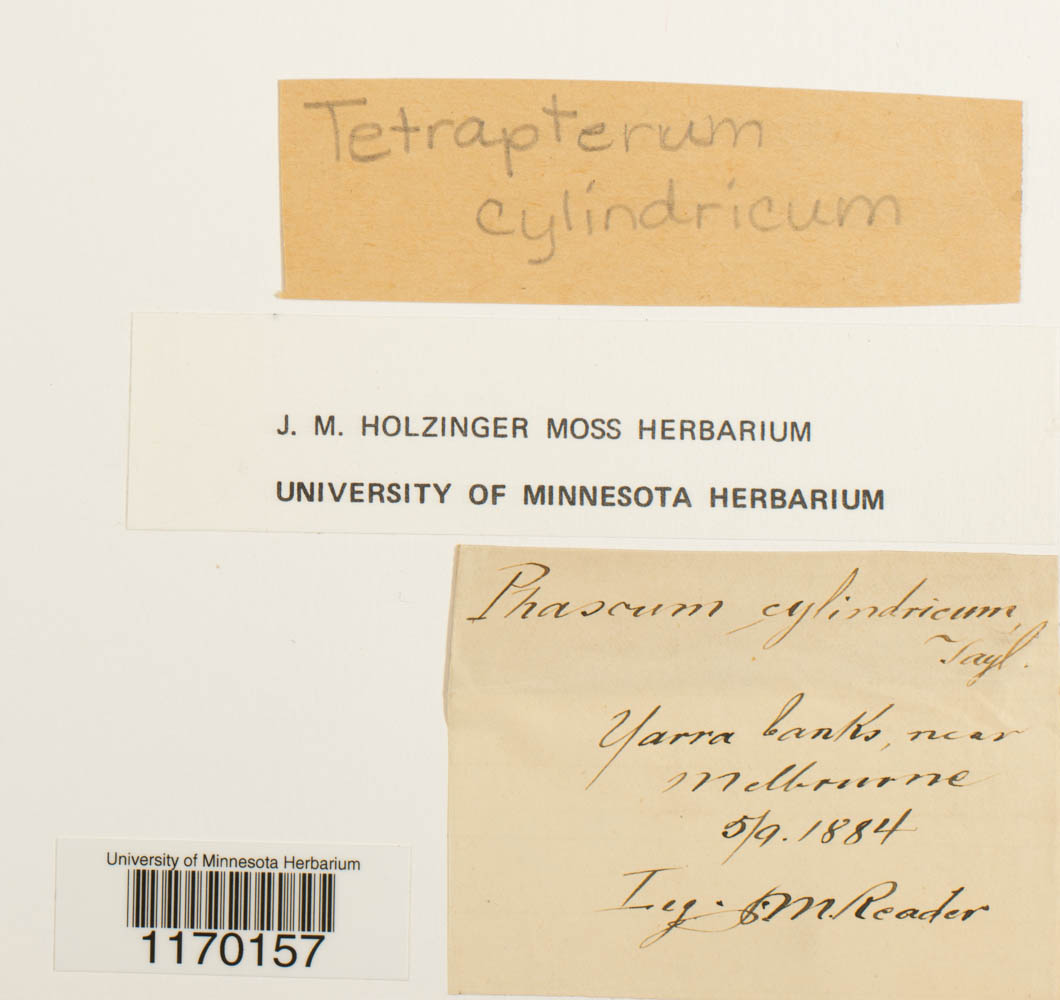 Tetrapterum
cylindricum
J. M. HOLZINGER MOSS HERBARIUM
UNIVERSITY OF MINNESOTA HERBARIUM
Phascum cylindricum,
Tayl.
Yarra banks, near
Melbourne
5/9. 1884
Leg. F. M. Reader
University of Minnesota Herbarium
1170157